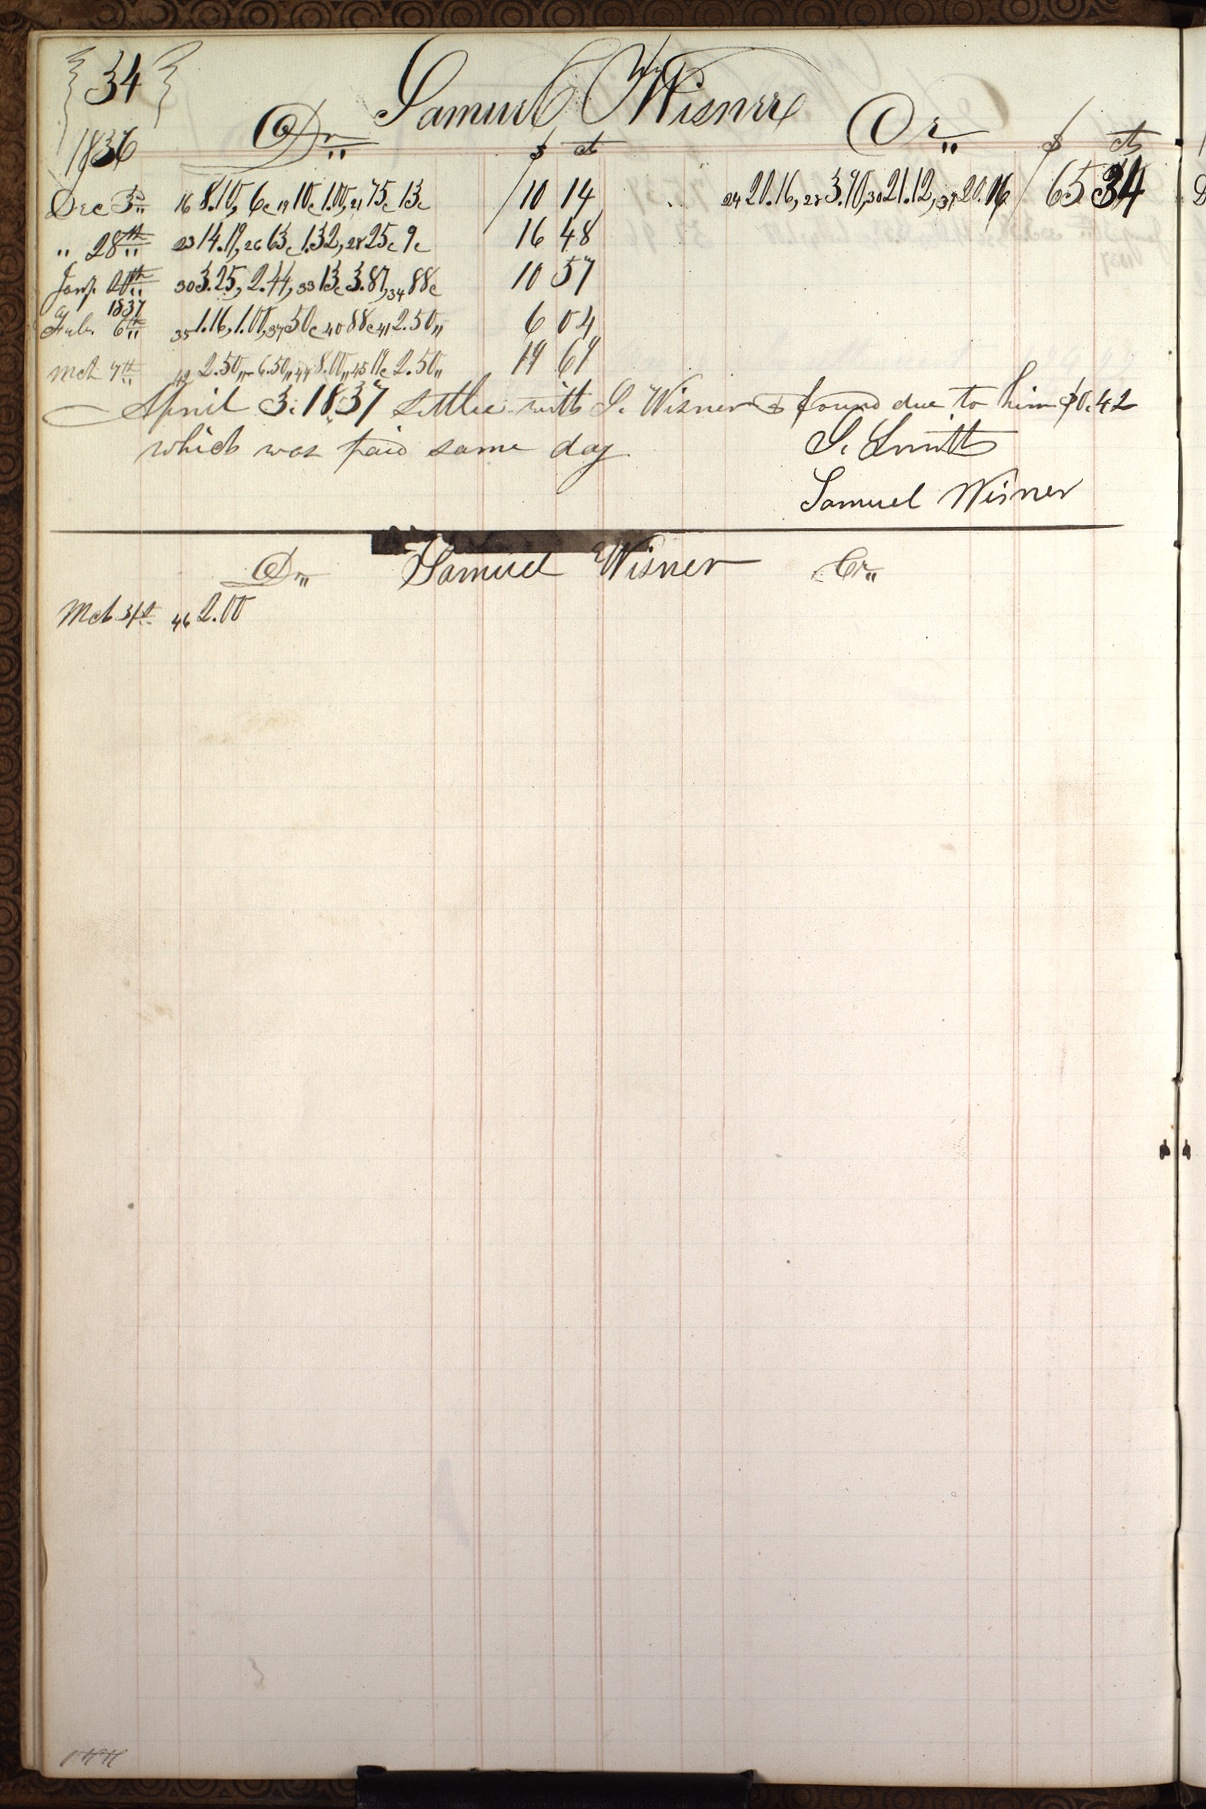 34
Samuel Wisner
1836 Dr,, $ ct Cr,, $ cts
Dec 3rd,, 16 8.10, 6c 19 10c 1.00, 21 75c 13c 10 14 24 20.16, 28 3.90, 30 21.12, 37 20.16 65 34
,, 28th,, 23 14.19, 26 63c 1.32, 28 25c 9c 16 48
Jany 20th,, 30 3.25, 2.44, 33 13c 3.87, 34 88c 10 57
1837
Feb. 6th,, 35 1.16, 1.00, 37 50c 40 88c 41 2.50,, 6 04
Mch 7th,, 42 2.50,, 6.50,, 44 8.00,, 45 19c 2.50,, 19 69
April 3. 1837 Settled with S. Wisner & found due to him $0.42
which was paid same day
S. Smith
Samuel Wisner
Dr,, Samuel Wisner Cr,,
Mch 31st 46 2.00